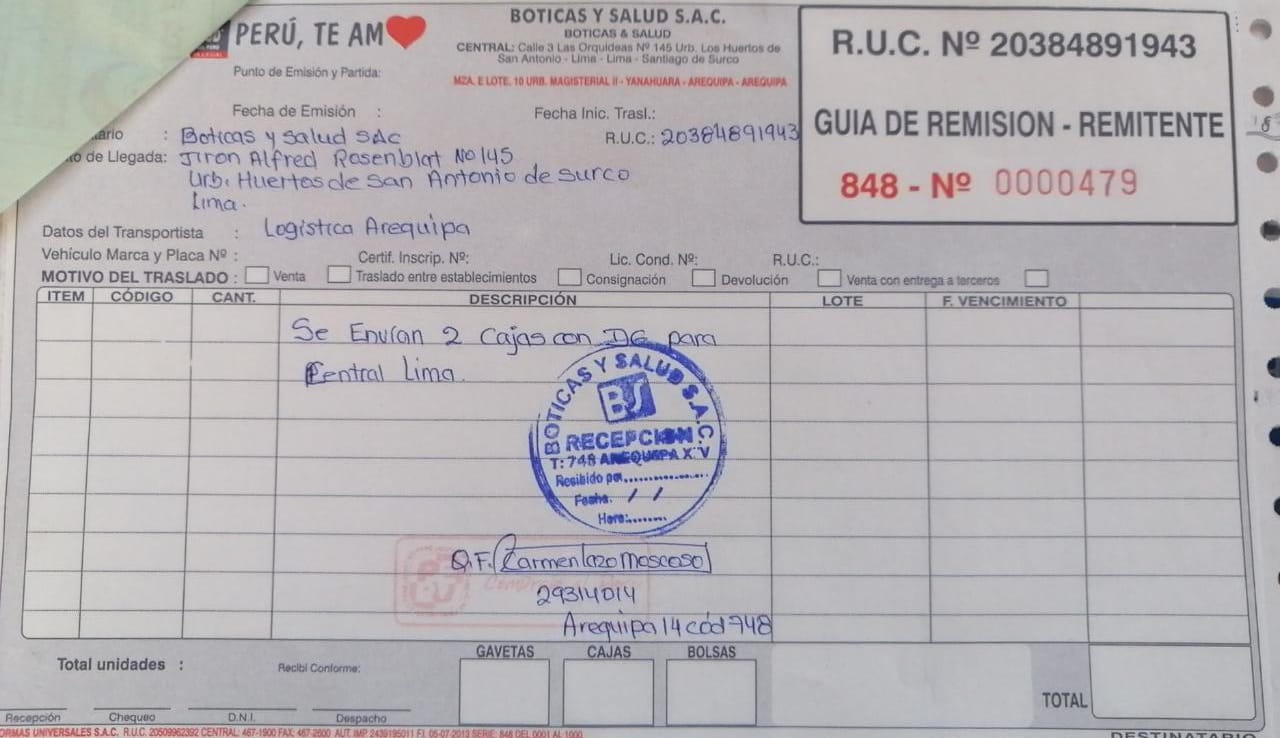 PERÚ, TE AM
BOTICAS Y SALUD S.A.C.
BOTICAS & SALUD
CENTRAL: Calle 3 Las Orquideas Nº 145 Urb. Los Huertos de
San Antonio - Lima - Lima - Santiago de Surco
MZA. E LOTE. 10 URB. MAGISTERIAL II - YANAHUARA - AREQUIPA - AREQUIPA
R.U.C. Nº 20384891943
GUIA DE REMISION - REMITENTE
848 - Nº 0000479
Punto de Emisión y Partida:
Fecha de Emisión :
Fecha Inic. Trasl.:
ario : Boticas y Salud SAC
R.U.C.: 20384891943
to de Llegada: Jiron Alfred Rosenblat No 145
Urb. Huertos de San Antonio de Surco
Lima.
Datos del Transportista : Logística Arequipa
Vehículo Marca y Placa Nº :
Certif. Inscrip. Nº:
Lic. Cond. Nº:
R.U.C.:
MOTIVO DEL TRASLADO : Venta Traslado entre establecimientos Consignación Devolución Venta con entrega a terceros
ITEM CÓDIGO CANT. DESCRIPCIÓN LOTE F. VENCIMIENTO
Se Envían 2 Cajas con DG para
Central Lima.
BOTICAS Y SALUD S.A.C.
BS
RECEPCION
T: 748 AREQUIPA X V
Recibido por..............
Fecha. / /
Hora:........
Q.F. Carmen Lazo Moscoso
29314014
Arequipa 14 cód 748
Total unidades :
Recibi Conforme:
GAVETAS
CAJAS
BOLSAS
TOTAL
Recepción
Chequeo
D.N.I.
Despacho
ORMAS UNIVERSALES S.A.C. R.U.C. 20509962392 CENTRAL: 467-1900 FAX: 467-2600 AUT. IMP. 2439195011 F.I. 05-07-2013 SERIE: 848 DEL 0001 AL 1000
DESTINATARIO